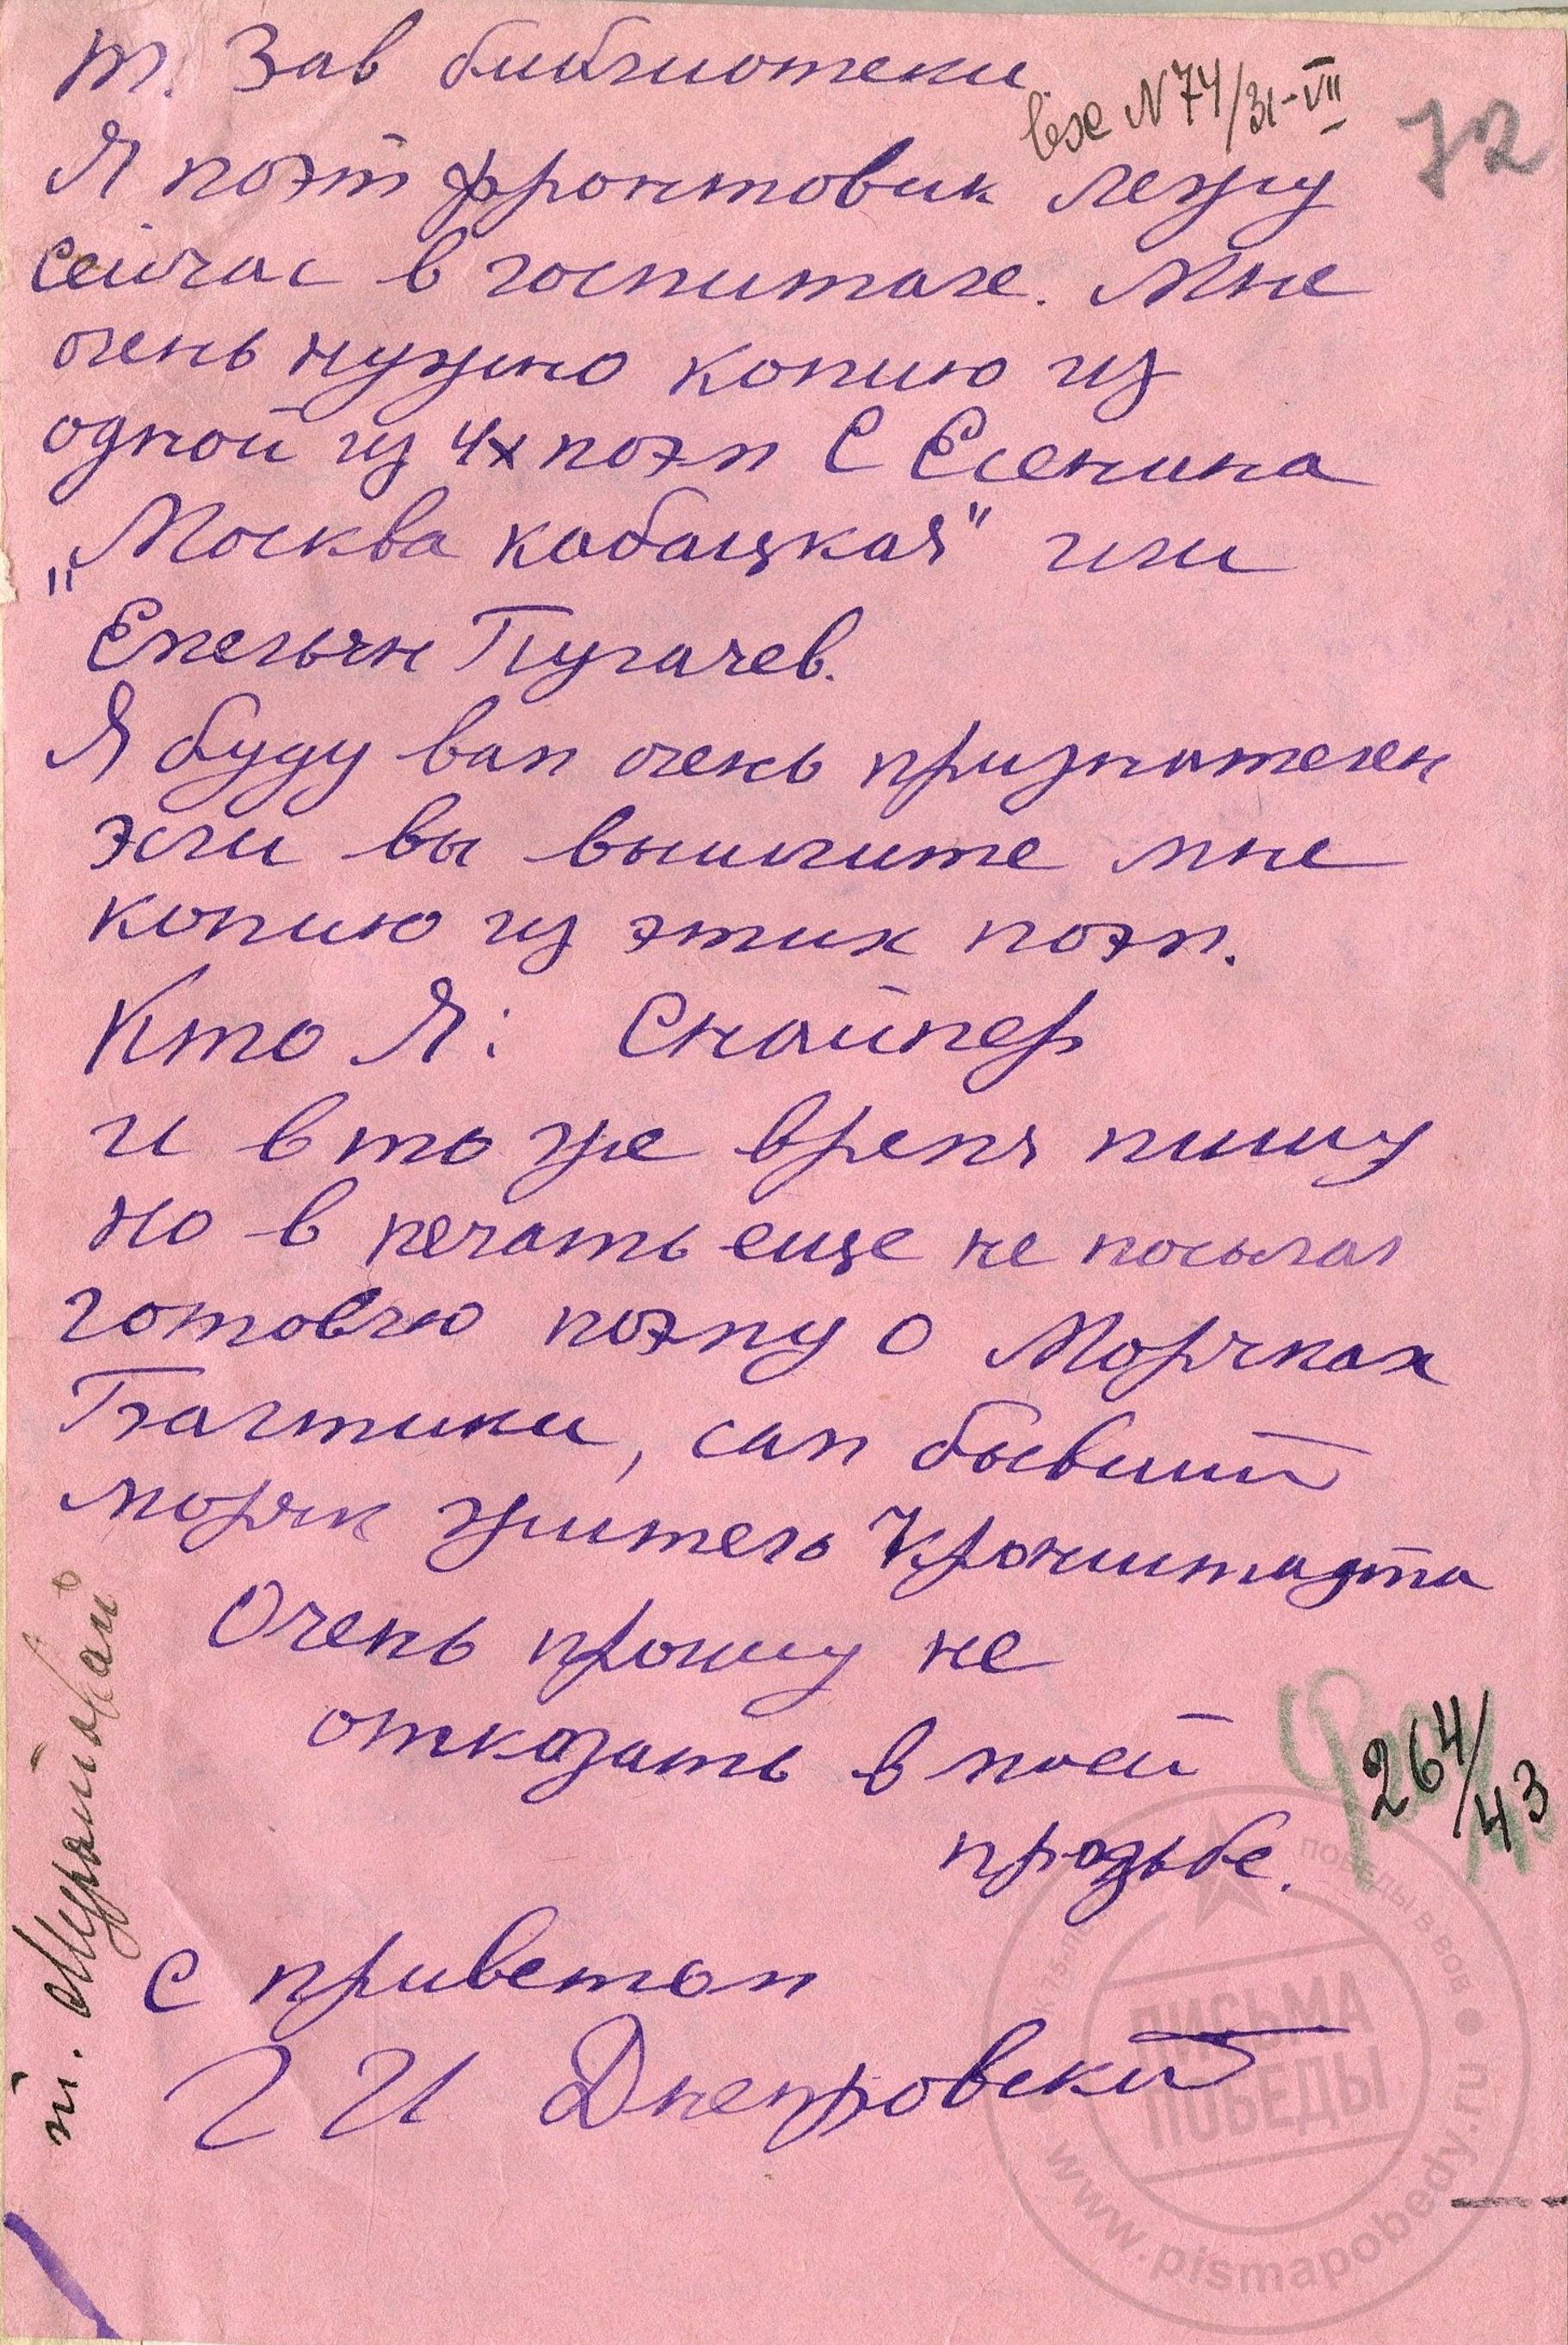 т. Зав библиотеки
вх N 74/31-VII
72
Я поэт фронтовик лежу
сейчас в госпитале. Мне
очень нужно копию из
одной из 4х поэм С Есенина
„Москва кабацкая" или
Емельян Пугачев.
Я буду вам очень признателен
эсли вы вышлите мне
копию из этих поэм.
Кто Я: Снайпер
и в то же время пишу
но в печать еще не посылал
готовлю поэму о Моряках
Балтики, сам бывший
моряк житель Кронштадта
Очень прошу не
отказать в моей
прозьбе.
264/43
С приветом
Г И Днепровский
т.
ПОБЕДЫ В ВОВ
ПИСЬМА
ПОБЕДЫ
www.pismapobedy.ru